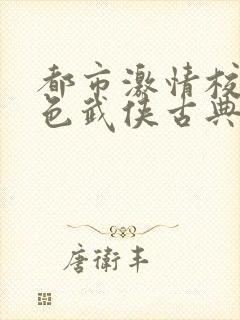 都市激情校
色武侠古典
唐衛丰